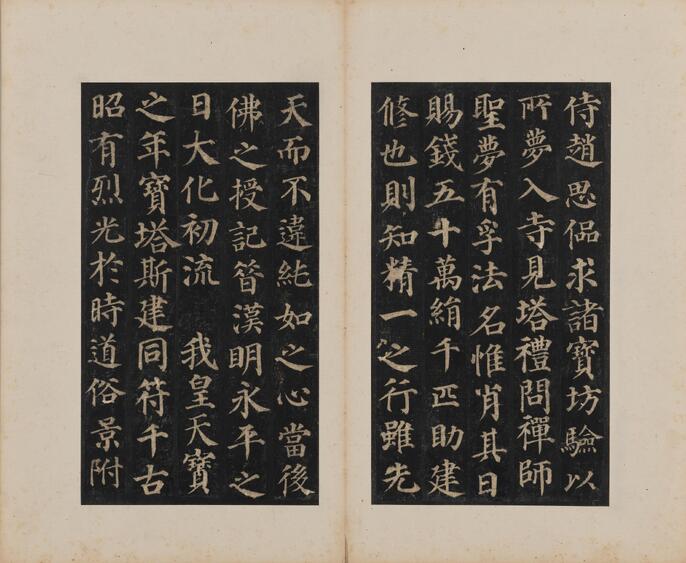 侍趙思偘求諸寶坊驗以
所夢入寺見塔禮問禪師
聖夢有孚法名惟肖其日
賜錢五十萬絹千匹助建
修也則知精一之行雖先
天而不違純如之心當後
佛之授記昔漢明永平之
日大化初流 我皇天寶
之年寶塔斯建同符千古
昭有烈光於時道俗景附